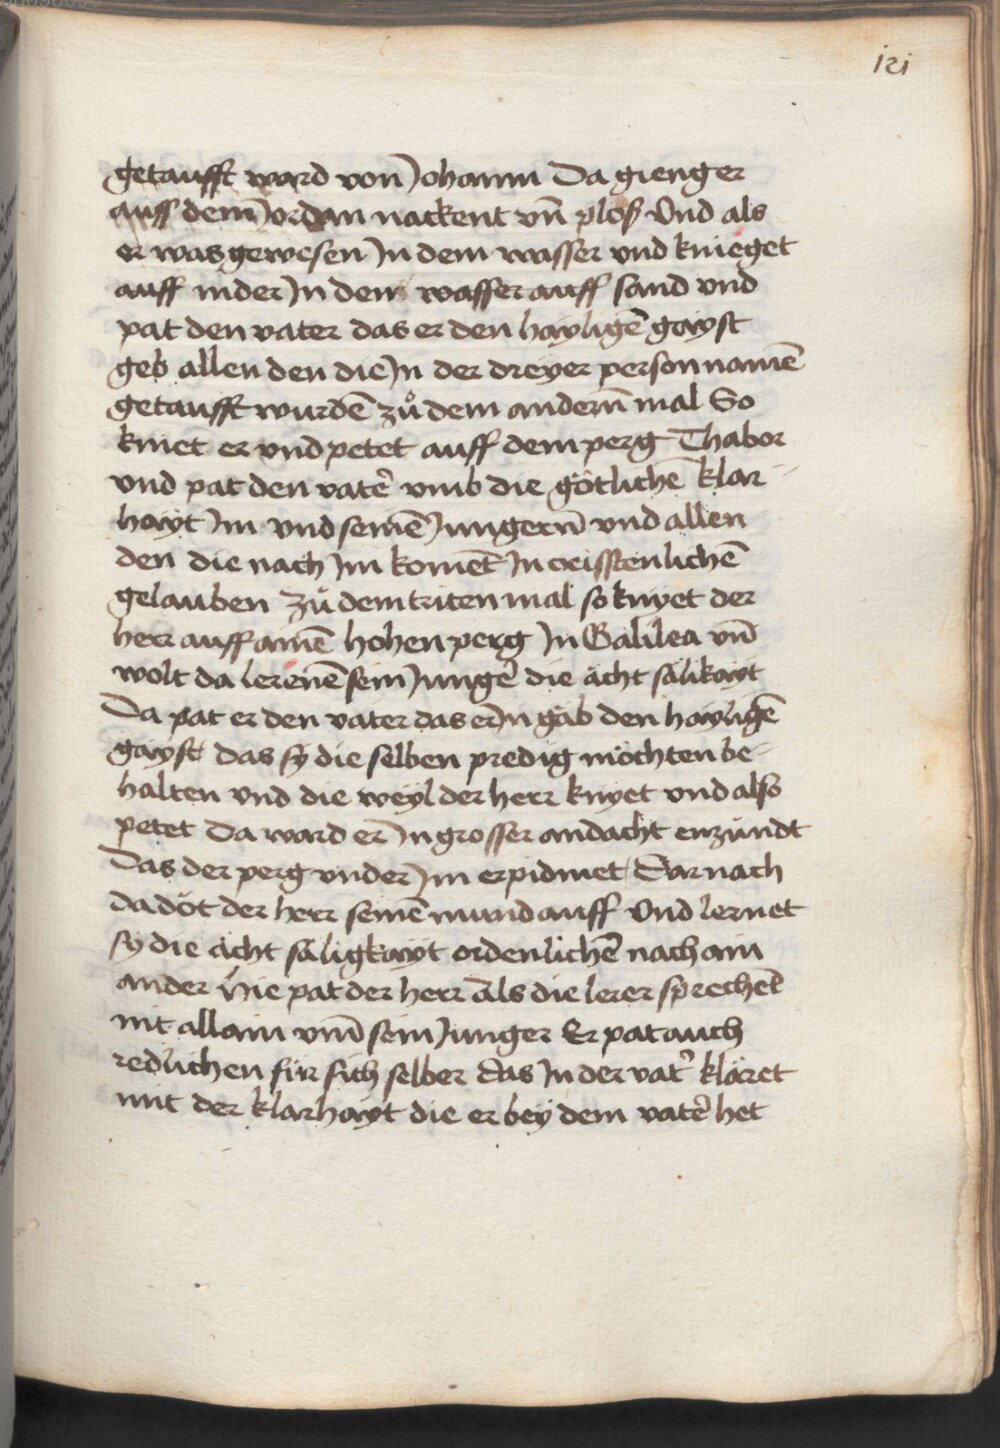 121
getaufft ward von Johanni Da gieng er
auff dem Jordan nackent vn̄ ploß Vnd als
er was gewesen Jn dem wasser vnd knieget
auff nider Jn dem wasser auff sand vnd
pat den vater das er den hayligē gayst
geb allen den die Jn der dreyer person namē
getaufft wurdē zů dem andern̄ mal So
kniet er vnd petet auff dem perg Thabor
vnd pat den vat̄er vmb die götlichē klar-
hayt Jm vnd seinē Jungern̄ vnd allen
den die nach Jm komēt Jn cristenlichē
gelauben Zů dem triten mal so knyet der
herr auff ainē hohen perg Jn Galilea vn̄
wolt da lerenē sein Jungēr die ächt sälikayt
Da pat er den vater das er Jn gäb den hayligē
gayst das sy die selben predig möchten be-
halten vnd die weyl der herr knyet vnd also
petet Da ward er Jn grosser andacht enzündt
Das der perg vnder Jm erpidmet Dar nach
da döt der herr seinē mund auff Vnd lernet
sy die ächt säligkayt ordenlichē nach ain
ander Hie pat der herr als die lerer sprechēt
nit allain vm̄ sein Junger Er pat auch
redlichen für sich selber das Jn der vat̄er kläret
mit der klarhayt die er bey dem vat̄er het